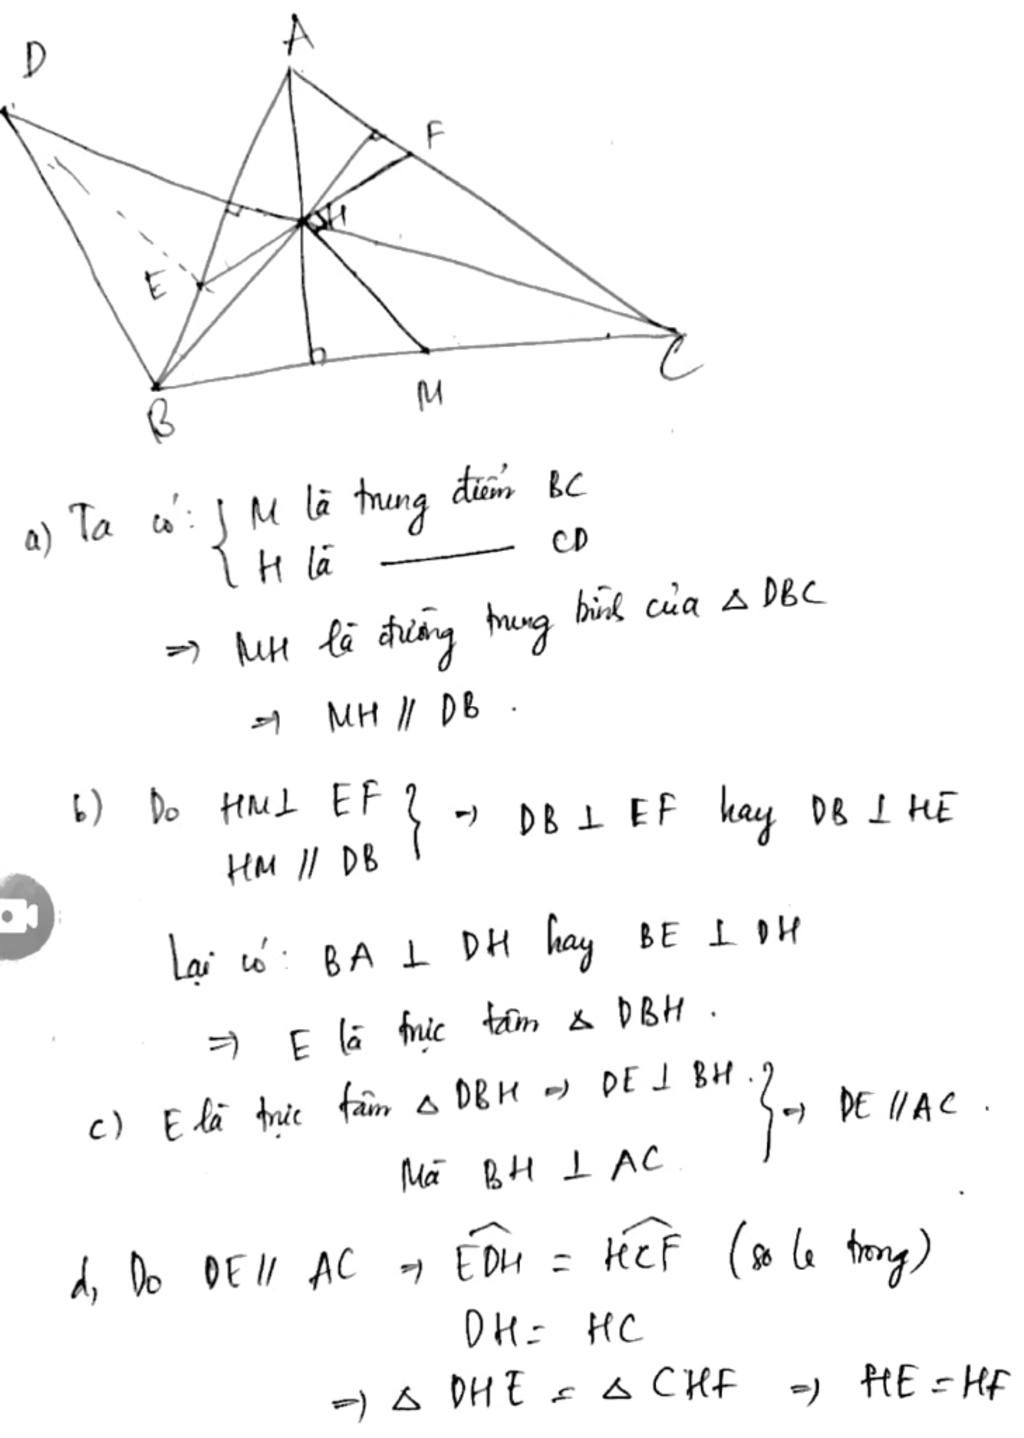 D
A
F
H
E
B
M
C
a) Ta có: { M là trung điểm BC
H là ——— CD
=> MH là đường trung bình của Δ DBC
=> MH // DB .
b) Do HM ⊥ EF } => DB ⊥ EF hay DB ⊥ HE
HM // DB
Lại có: BA ⊥ DH hay BE ⊥ DH
=> E là trực tâm Δ DBH .
c) E là trực tâm Δ DBH => DE ⊥ BH . } => DE // AC .
Mà BH ⊥ AC
d, Do DE // AC => EDH = HCF (so le trong)
DH = HC
=> Δ DHE = Δ CHF => HE = HF